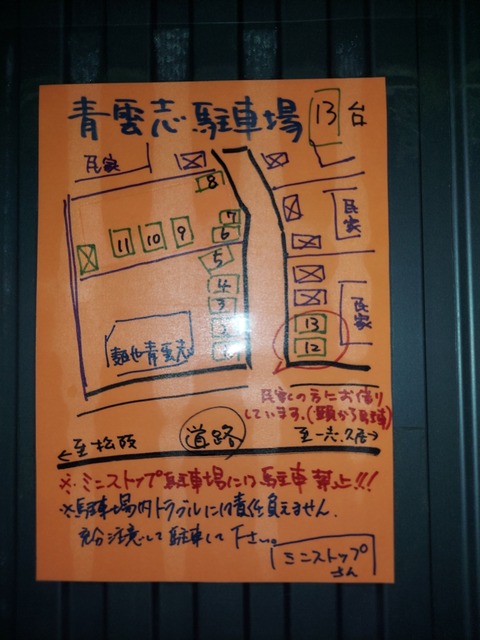 青雲志駐車場 13台
民家
8
7
11 10 9 6
5
4
3
2
1
民家
民家
13
12
麺や青雲志
民家の方にお借り
しています。(頭から駐車)
至松阪 道路 至一志久居
※ミニストップ駐車場には駐車禁止!!!
※駐車場内トラブルには責任負えません。
充分注意して駐車して下さい。
ミニストップ
さん